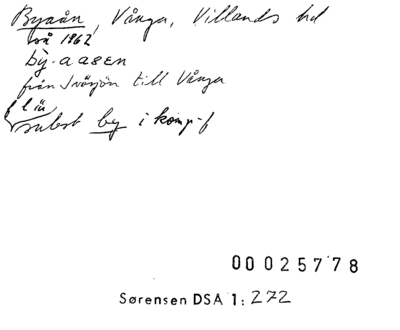 Byaån, Vånga, Villands hd
så 1862
by-aasen
från Ivösjön till Vånga
f l ä
subst by i komp-f
00025778
Sørensen DSA 1: 272